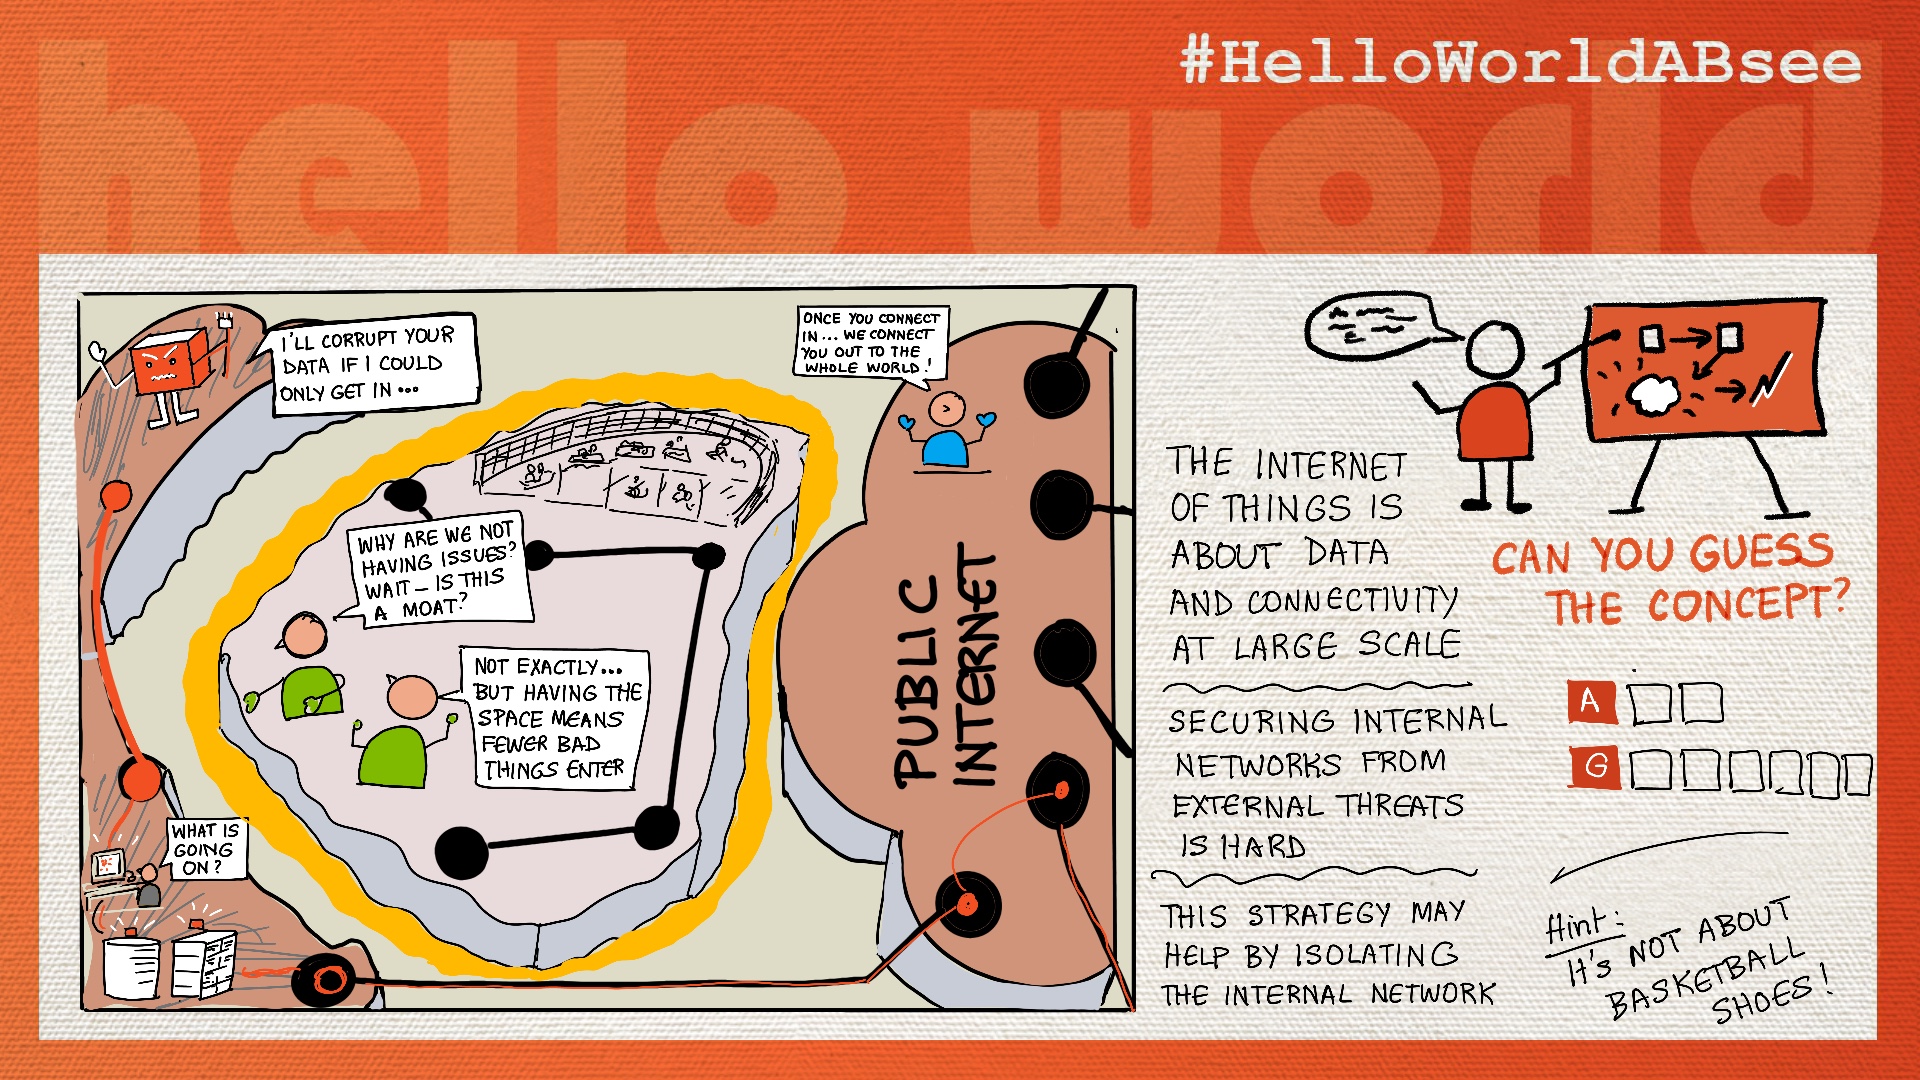 #HelloWorldABsee
hello world
I'LL CORRUPT YOUR
DATA IF I COULD
ONLY GET IN...
ONCE YOU CONNECT
IN... WE CONNECT
YOU OUT TO THE
WHOLE WORLD!
WHY ARE WE NOT
HAVING ISSUES?
WAIT – IS THIS
A MOAT?
NOT EXACTLY...
BUT HAVING THE
SPACE MEANS
FEWER BAD
THINGS ENTER
WHAT IS
GOING
ON?
PUBLIC
INTERNET
THE INTERNET
OF THINGS IS
ABOUT DATA
AND CONNECTIVITY
AT LARGE SCALE
SECURING INTERNAL
NETWORKS FROM
EXTERNAL THREATS
IS HARD
THIS STRATEGY MAY
HELP BY ISOLATING
THE INTERNAL NETWORK
CAN YOU GUESS
THE CONCEPT?
A
G
Hint:
It's NOT ABOUT
BASKETBALL
SHOES!